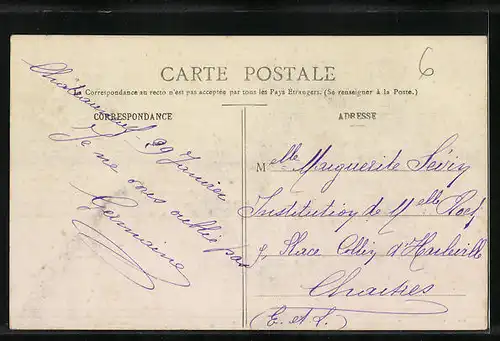 6
CARTE POSTALE
La Correspondance au recto n'est pas acceptée par tous les Pays Etrangers. (Se renseigner à la Poste.)
CORRESPONDANCE
Châteauneuf - 29 Janvier
Je ne vous oublie pas
Germaine
ADRESSE
Melle Marguerite
Institution de Melle
Place Collin d'Harleville
Chartres
(E. et L.)